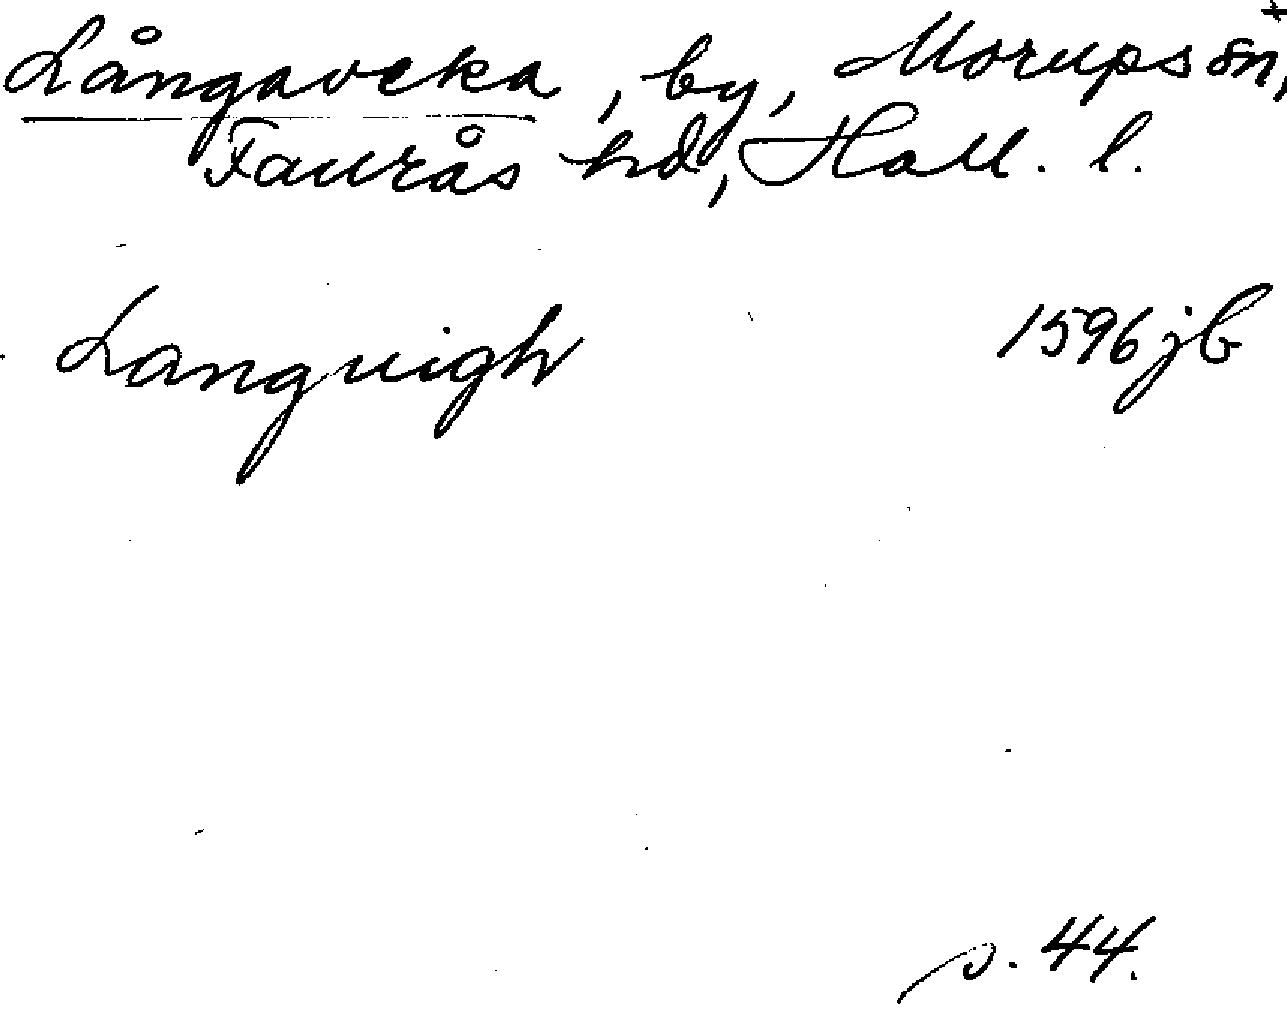 Långaveka, by, Morups sn,
Faurås hd, Hall. l.
Languigh 1596 jb
s. 44.